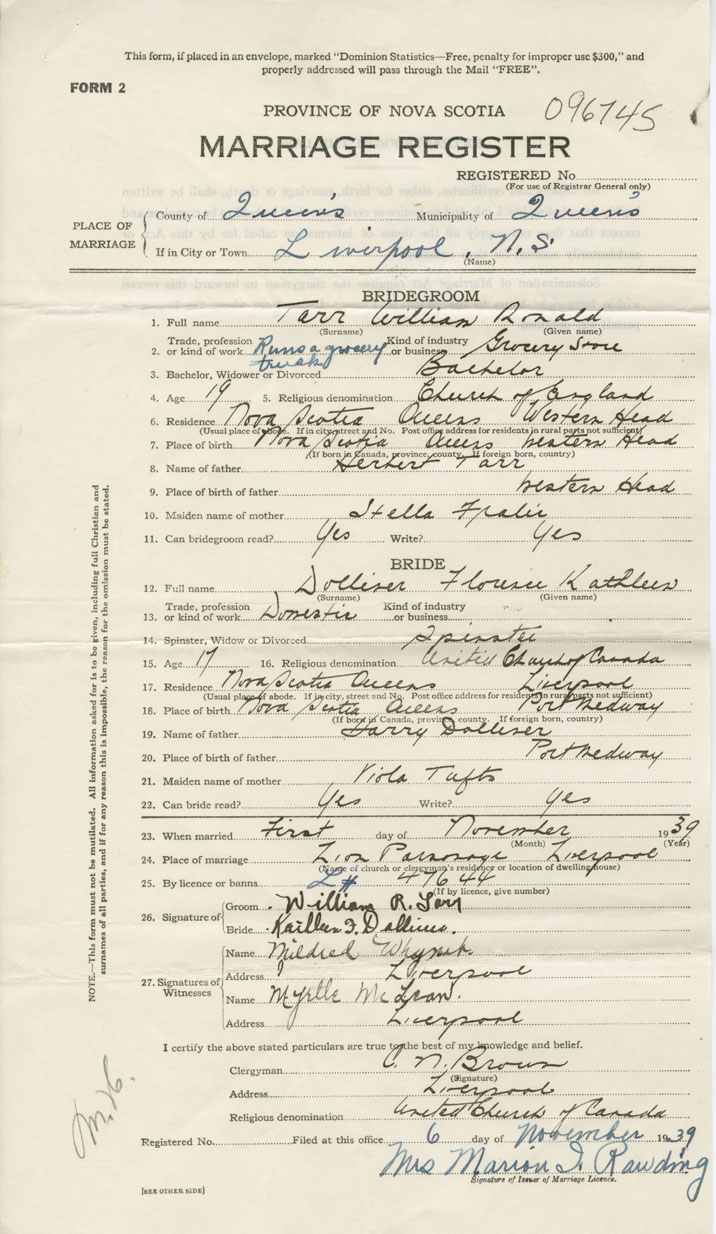 This form, if placed in an envelope, marked "Dominion Statistics—Free, penalty for improper use $300," and
properly addressed will pass through the Mail "FREE".
FORM 2
PROVINCE OF NOVA SCOTIA 096745
MARRIAGE REGISTER
REGISTERED No.
(For use of Registrar General only)
PLACE OF MARRIAGE
County of Queens Municipality of Queens
If in City or Town Liverpool, N.S.
(Name)
BRIDEGROOM
1. Full name Tarr William Ronald
(Surname) (Given name)
2. Trade, profession or kind of work Runs a grocery truck Kind of industry or business Grocery Store
3. Bachelor, Widower or Divorced Bachelor
4. Age 19 5. Religious denomination Church of England
6. Residence Nova Scotia Queens Western Head
(Usual place of abode. If in city, street and No. Post office address for residents in rural parts not sufficient)
7. Place of birth Nova Scotia Queens Western Head
(If born in Canada, province, county. If foreign born, country)
8. Name of father Herbert Tarr
9. Place of birth of father Western Head
10. Maiden name of mother Stella Fralic
11. Can bridegroom read? Yes Write? Yes
BRIDE
12. Full name Dolliver Florence Kathleen
(Surname) (Given name)
13. Trade, profession or kind of work Domestic Kind of industry or business
14. Spinster, Widow or Divorced Spinster
15. Age 17 16. Religious denomination United Church of Canada
17. Residence Nova Scotia Queens Liverpool
(Usual place of abode. If in city, street and No. Post office address for residents in rural parts not sufficient)
18. Place of birth Nova Scotia Queens Port Medway
(If born in Canada, province, county. If foreign born, country)
19. Name of father Harry Dolliver
20. Place of birth of father Port Medway
21. Maiden name of mother Viola Tufts
22. Can bride read? Yes Write? Yes
23. When married First day of November 1939
(Month) (Year)
24. Place of marriage Zion Parsonage Liverpool
(Name of church or clergyman's residence or location of dwelling house)
25. By licence or banns L# 47644
(If by licence, give number)
26. Signature of
Groom William R. Tarr
Bride Kathleen F. Dolliver.
27. Signatures of Witnesses
Name Mildred Whynot.
Address Liverpool
Name Myrtle McLean.
Address Liverpool
I certify the above stated particulars are true to the best of my knowledge and belief.
Clergyman C. N. Brown
(Signature)
Address Liverpool
Religious denomination United Church of Canada
Registered No. Filed at this office 6 day of November 1939
Mrs Marion I. Rawding
Signature of Issuer of Marriage Licence.
[SEE OTHER SIDE]
NOTE.—This form must not be mutilated. All information asked for is to be given, including full Christian and
surnames of all parties, and if for any reason this is impossible, the reason for the omission must be stated.